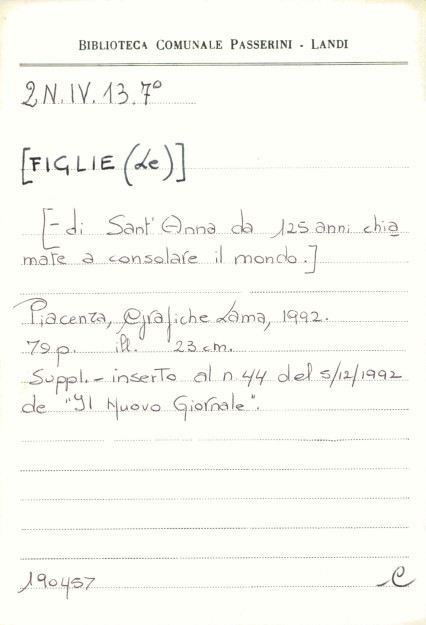 BIBLIOTECA COMUNALE PASSERINI - LANDI
2N.IV.13.7°
[FIGLIE (Le)]
[- di Sant'Anna da 125 anni chia
mate a consolare il mondo.]
Piacenza, Grafiche Lama, 1992.
79p. ill. 23 cm.
Suppl.- inserto al n. 44 del 5/12/1992
de "Il Nuovo Giornale".
190457 C